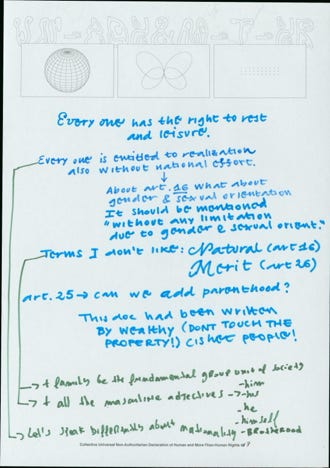 Every one has the right to rest
and leisure.
Every one is entitled to realization
also without national effort.
↓
About art. 16 what about
gender & sexual orientation
It should be mentioned
"without any limitation
due to gender & sexual orient."
Terms I don't like: Natural (art 16)
Merit (art 26)
art. 25 → can we add parenthood?
This doc had been written
BY WEALTHY (DONT TOUCH THE
PROPERTY!) CIS HET PEOPLE!
→ + family be the fundamental group unit of society
→ + all the masculine adjectives → -him
-his
-he
-himself
-BROTHERHOOD
→ Let's speak differently about nationality
Collective Universal Non-Authoritarian Declaration of Human and More-Than-Human Rights